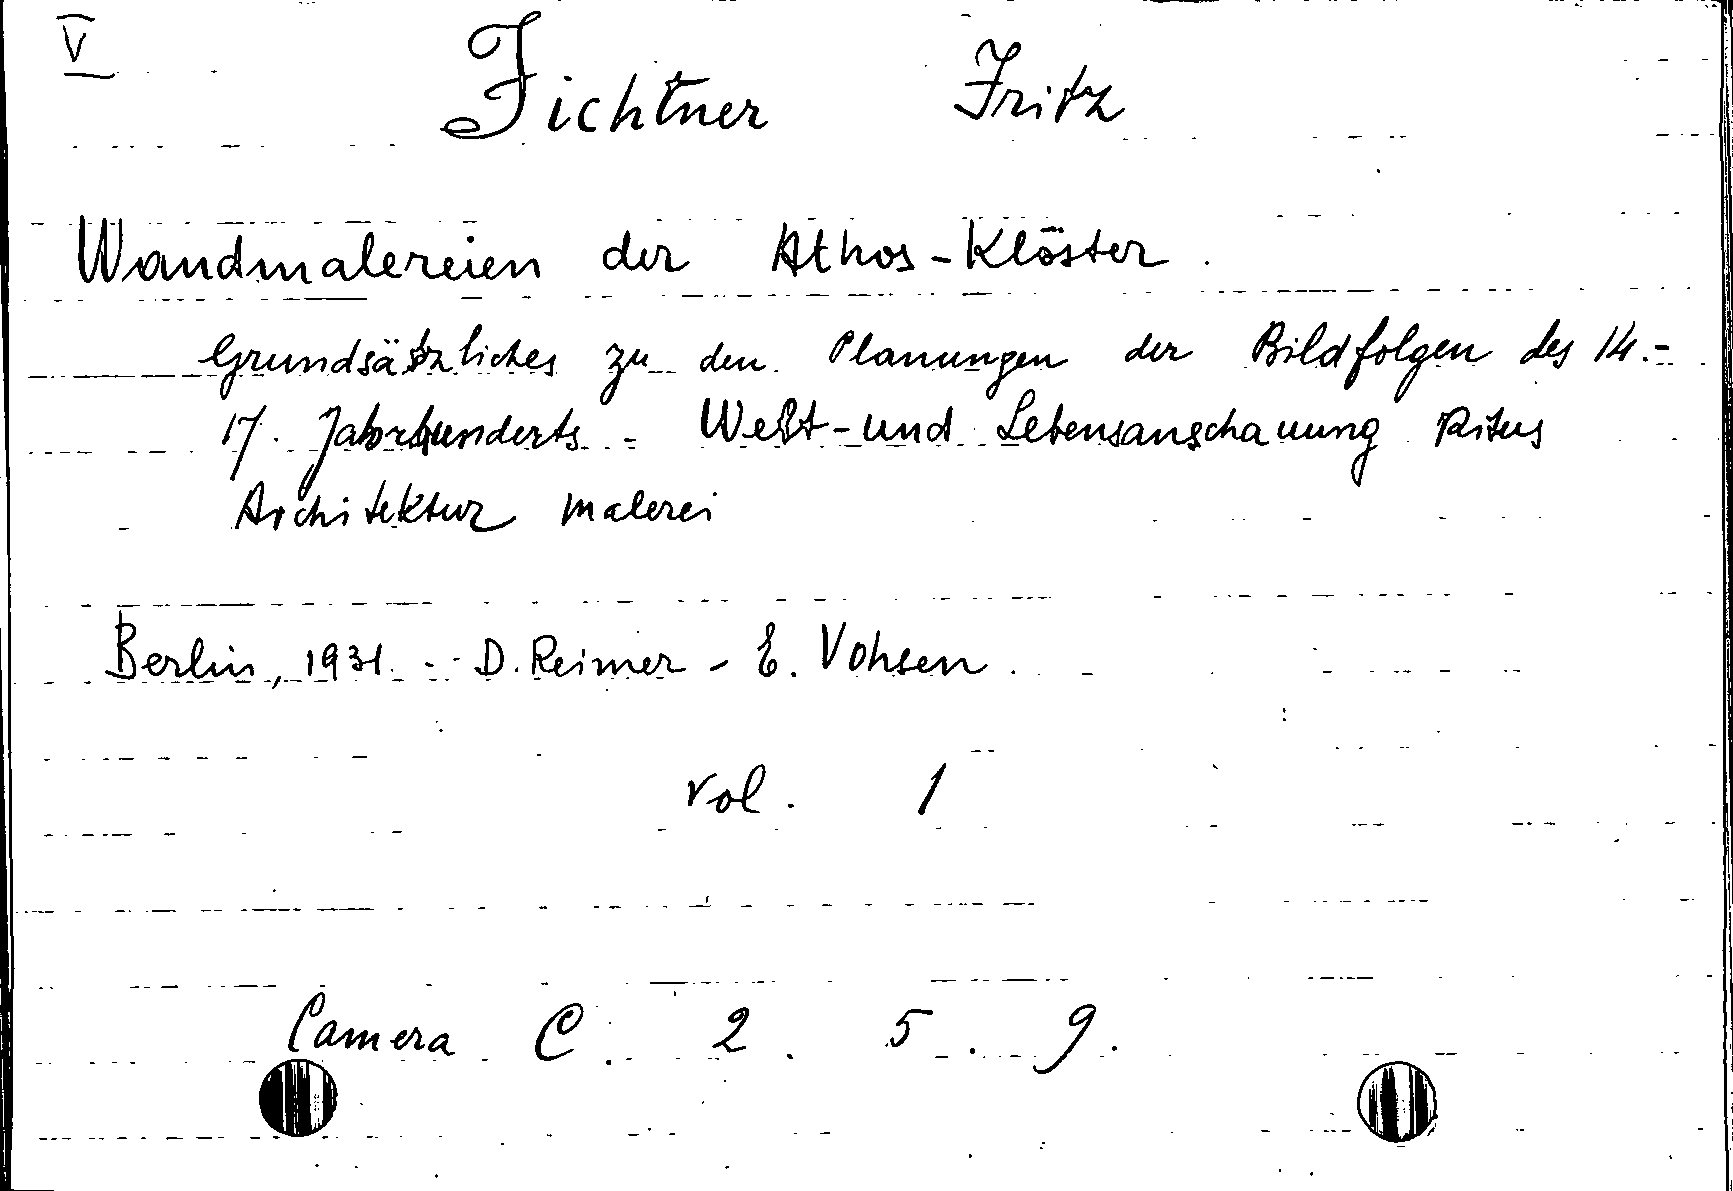 V
Fichtner Fritz
Wandmalereien der Athos-Klöster.
Grundsätzliches zu den Planungen der Bildfolgen des 14.-
17. Jahrhunderts - Welt-und Lebensanschauung Ritus
Architektur Malerei
Berlin, 1931. - D. Reimer - E. Vohsen.
vol. 1
Camera C. 2. 5. 9.